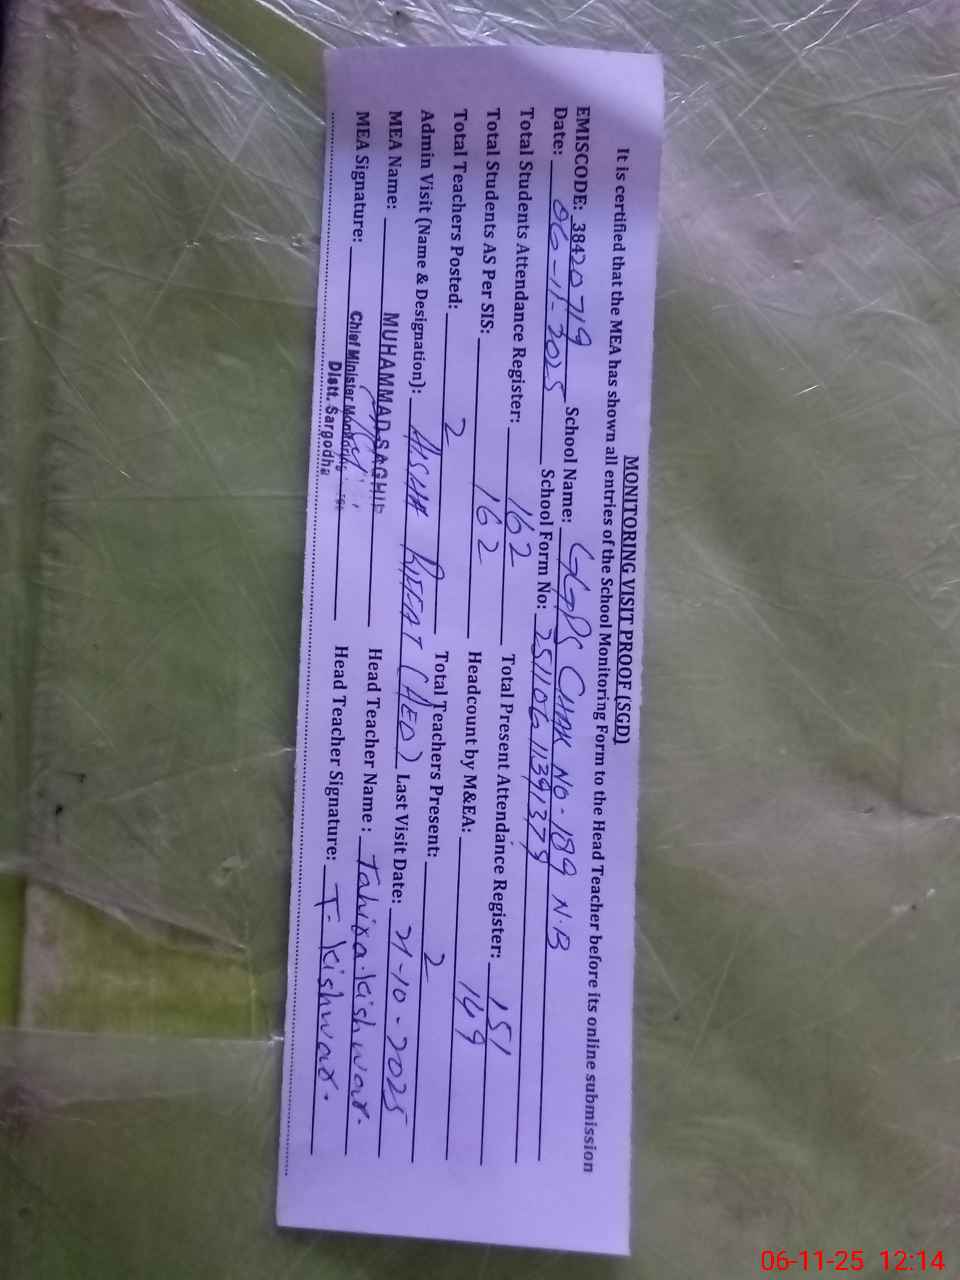 MONITORING VISIT PROOF (SGD)
It is certified that the MEA has shown all entries of the School Monitoring Form to the Head Teacher before its online submission
EMISCODE: 38420719 School Name: GGPS CHAK NO. 189 N.B
Date: 06-11-2025 School Form No: 25110611391379
Total Students Attendance Register: 162 Total Present Attendance Register: 151
Total Students AS Per SIS: 162 Headcount by M&EA: 149
Total Teachers Posted: 2 Total Teachers Present: 2
Admin Visit (Name & Designation): (AEO) Last Visit Date: 21-10-2025
MEA Name: MUHAMMAD SAGHIR Head Teacher Name : Tahira Kishwar.
MEA Signature: Chief Minister Head Teacher Signature: T. Kishwar.
Distt. Sargodha
06-11-25 12:14